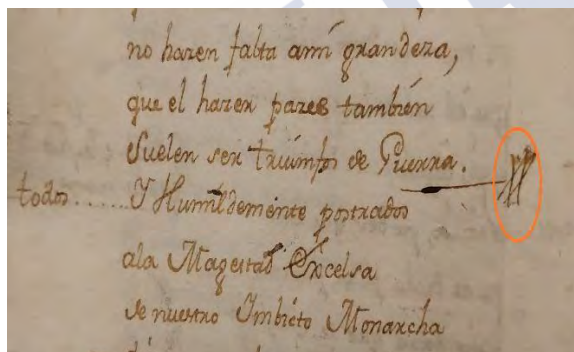 no hazen falta ami grandeza,
que el hazer pazes también
Suelen ser triumfos de Guerra.
todos...... Y Humildemente postrados
ala Magestad Excelsa
de nuestro Imbicto Monarcha